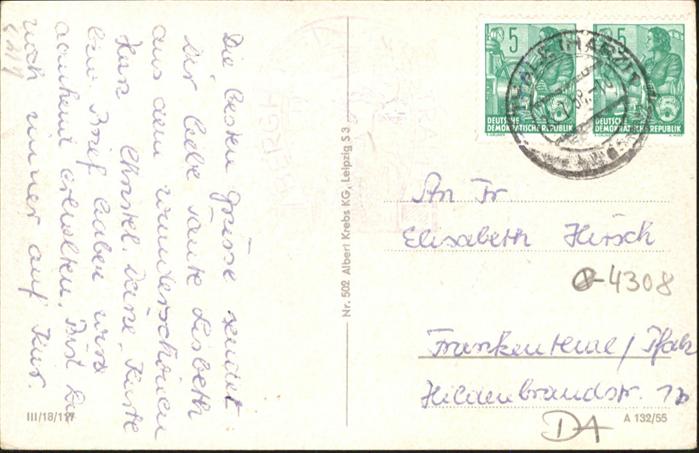 Die besten Grüsse sendet
dir liebe Tante Lisbeth
aus dem wunderschönen
Harz Christel. Deine Karte
Brief haben wir
dankend erhalten. Bist Du
noch immer auf Kur.
Nr. 502 Albert Krebs KG, Leipzig S 3
III/18/117
5
DEUTSCHE
DEMOKRATISCHE REPUBLIK
5
DEUTSCHE
DEMOKRATISCHE REPUBLIK
(HARZ)
An Fr
Elisabeth Hirsch
4308
Frankenthal / Pfalz
Hildenbrandstr.
A 132/55